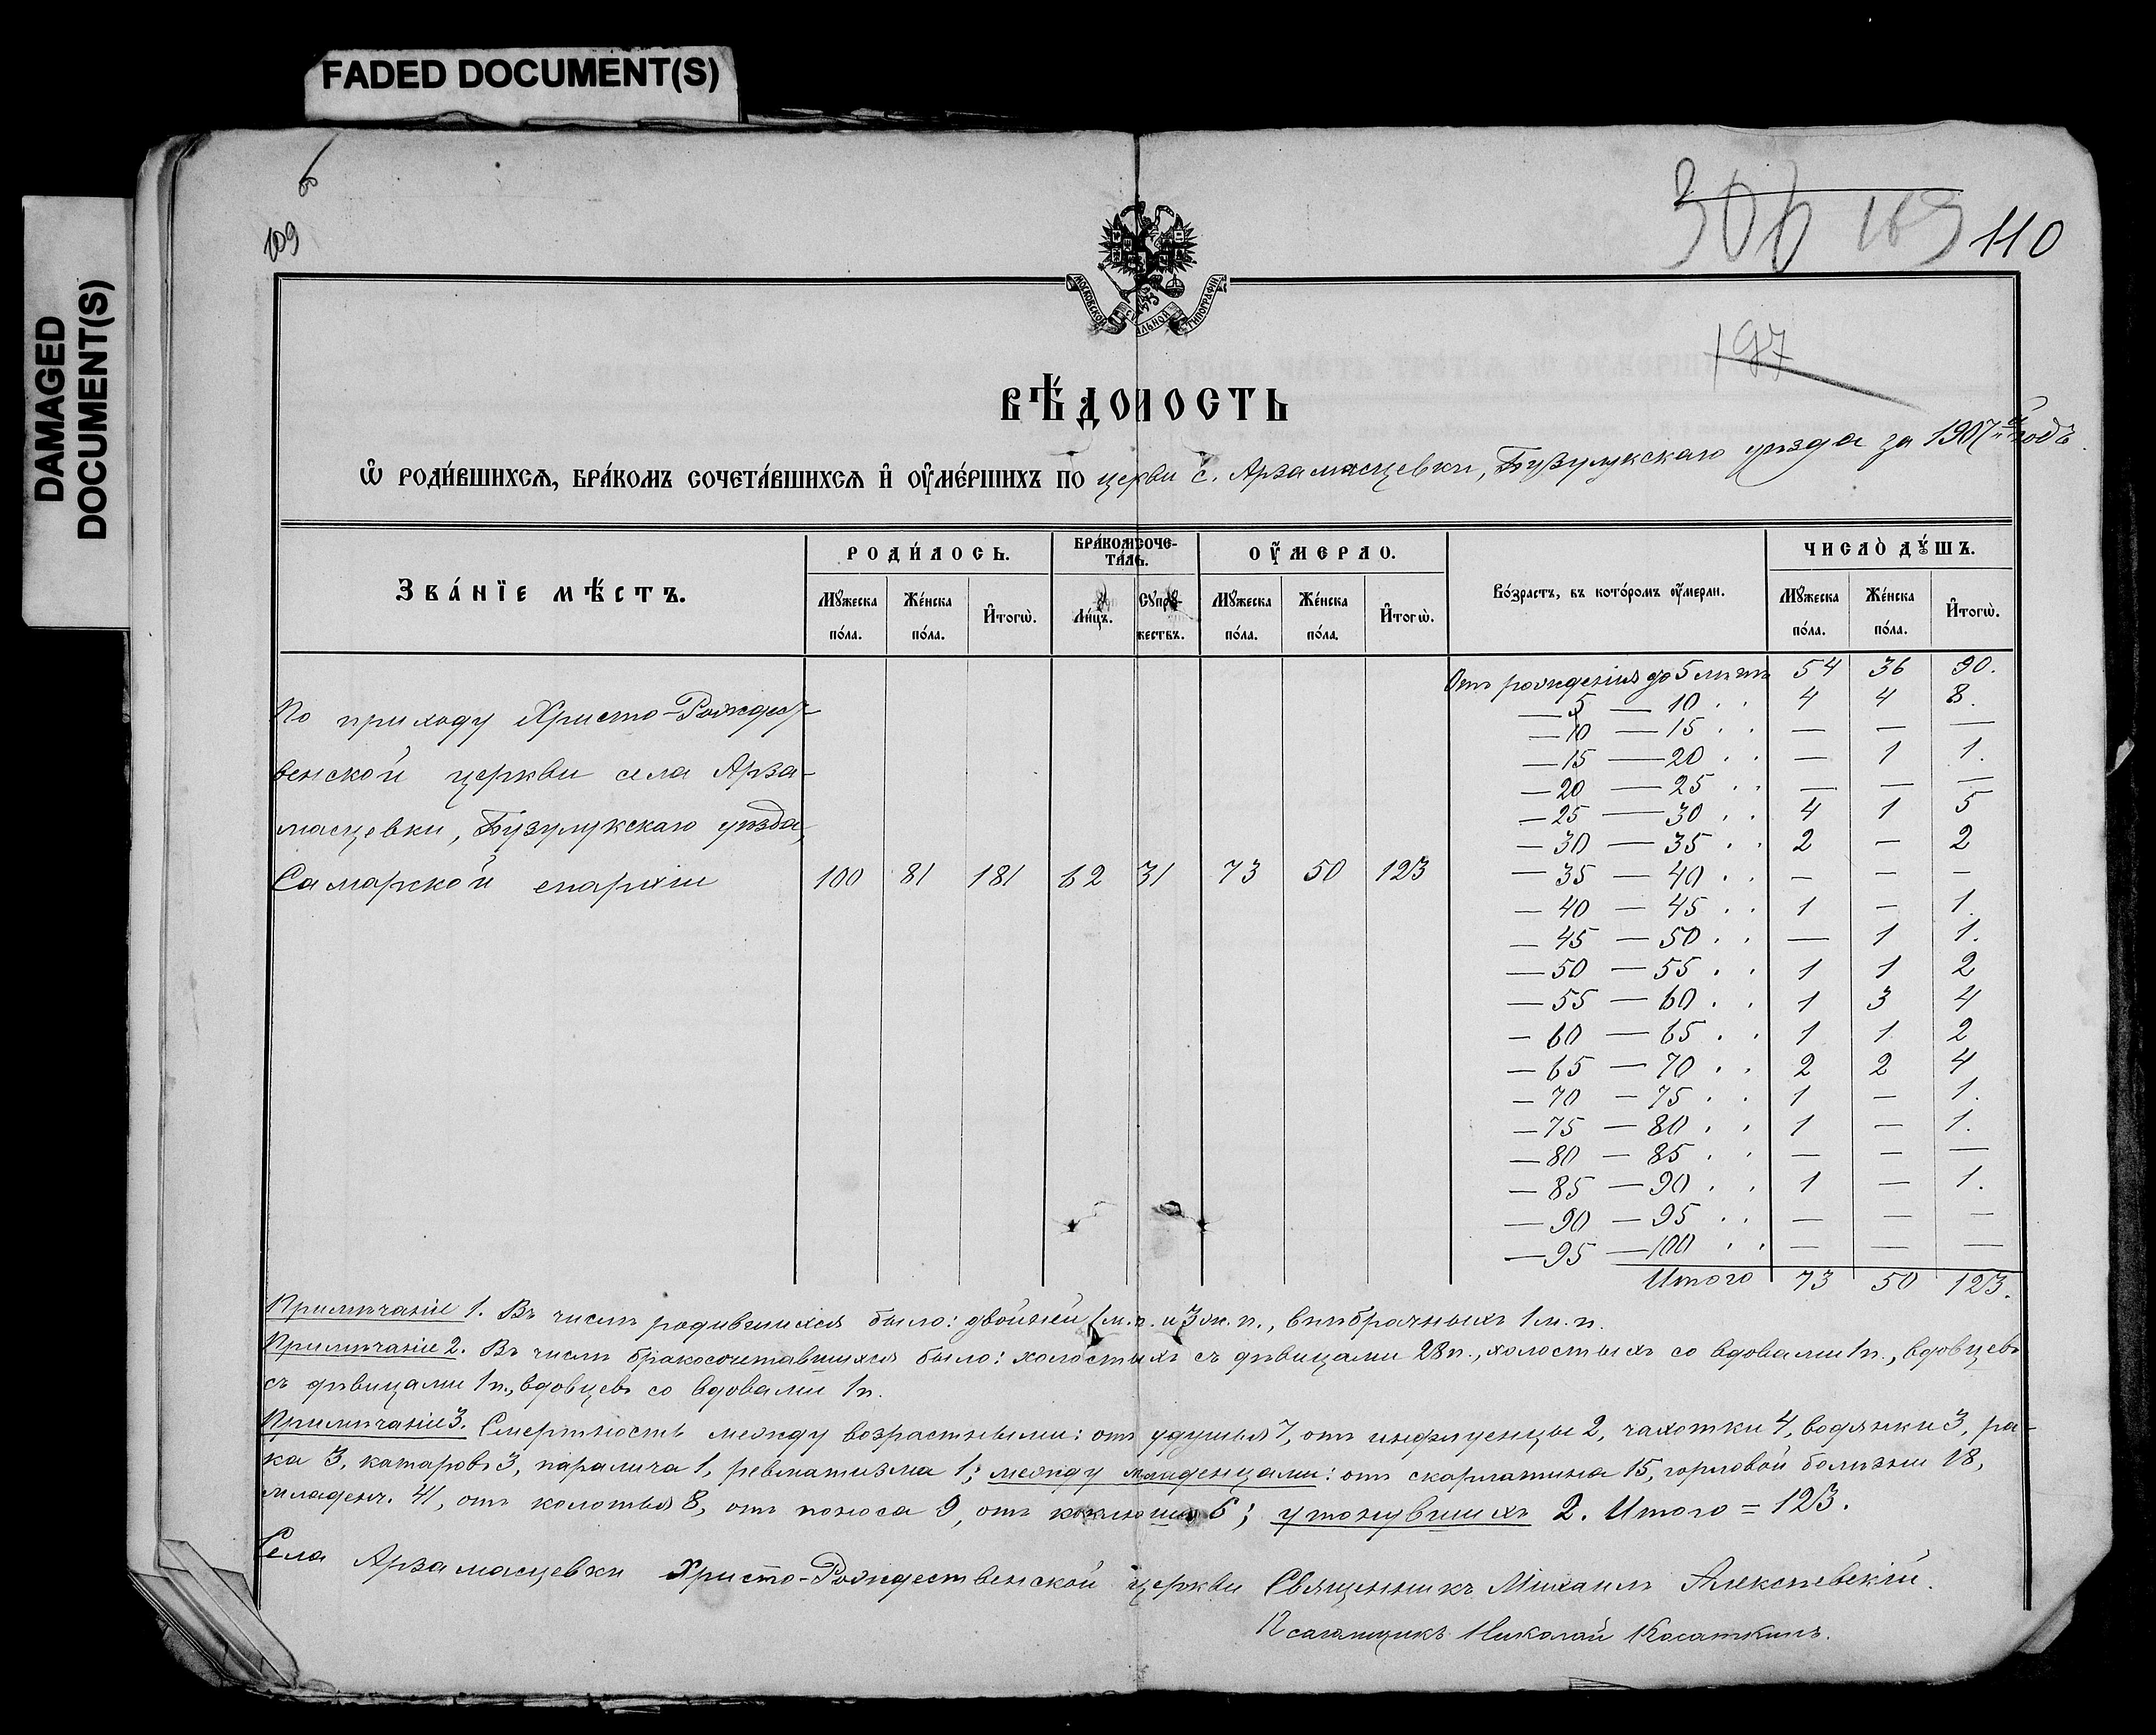 FADED DOCUMENT(S)
DAMAGED
DOCUMENT(S)
109
306 169 110
197
МОСКОВСКОЙ СѴНОДАЛЬНОЙ ТИПОГРАФІИ
ВѢ́ДОМОСТЬ
Ѡ҆ РОДИ́ВШИХСѦ, БРА́КОМЪ СОЧЕТА́ВШИХСѦ И҆ ОУ҆МЕ́РШИХЪ ПО церкви с. Арзамасцевки, Бузулукскаго уѣзда за 1907-й годъ.
ЗВА́НЇЕ МѢ́СТЪ.
РОДИ́ЛОСЬ.
БРА́КОМЪ СОЧЕ-
ТА́ЛѠСЬ.
ОУ҆́МЕРЛО.
Во́зрастъ, въ кото́ромъ оу҆́мерли.
ЧИСЛО̀ ДУ́ШЪ.
Му́жеска по́ла. Же́нска по́ла. И҆тогѡ̀. Ли́цъ. Супру́жествъ. Му́жеска по́ла. Же́нска по́ла. И҆тогѡ̀. Му́жеска по́ла. Же́нска по́ла. И҆тогѡ̀.
По приходу Христо-Рождест-
венской церкви села Арза-
масцевки, Бузулукскаго уѣзда,
Самарской епархіи 100 81 181 62 31 73 50 123
Отъ рожденія до 5 лѣтъ 54 36 90.
— 5 — 10 . . 4 4 8.
— 10 — 15 . . — — —
— 15 — 20 . . — 1 1.
— 20 — 25 . . — — —
— 25 — 30 . . 4 1 5
— 30 — 35 . . 2 — 2
— 35 — 40 . . — — —
— 40 — 45 . . 1 — 1.
— 45 — 50 . . — 1 1.
— 50 — 55 . . 1 1 2
— 55 — 60 . . 1 3 4
— 60 — 65 . . 1 1 2
— 65 — 70 . . 2 2 4
— 70 — 75 . . 1 — 1.
— 75 — 80 . . 1 — 1.
— 80 — 85 . . — — —
— 85 — 90 . . 1 — 1.
— 90 — 95 . . — — —
— 95 — 100 . . — — —
Итого 73 50 123.
Примѣчаніе 1. Въ числѣ родившихся было: двойней 1 м. п. и 3 ж. п., внѣбрачныхъ 1 м. п.
Примѣчаніе 2. Въ числѣ бракосочетавшихся было: холостыхъ съ дѣвицами 28 п., холостыхъ со вдовами 1 п., вдовцевъ
съ дѣвицами 1 п., вдовцевъ со вдовами 1 п.
Примѣчаніе 3. Смертность между возрастными: отъ удушья 7, отъ инфлуенцы 2, чахотки 4, водянки 3, ра-
ка 3, катаровъ 3, паралича 1, ревматизма 1; между младенцами: отъ скарлатина 15, горловой болѣзни 18,
младенч. 41, отъ колотья 8, отъ поноса 9, отъ коклюша 6; утонувшихъ 2. Итого = 123.
Села Арзамасцевки Христо-Рождественской церкви Священникъ Михаилъ Алексѣевскій.
Псаломщикъ Николай Касаткинъ.